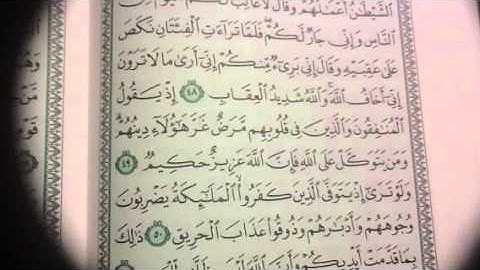 الشَّيْطَٰنُ أَعْمَٰلَهُمْ وَقَالَ لَا غَالِبَ لَكُمُ الْيَوْمَ مِنَ
النَّاسِ وَإِنِّي جَارٌ لَّكُمْ فَلَمَّا تَرَآءَتِ الْفِئَتَانِ نَكَصَ
عَلَىٰ عَقِبَيْهِ وَقَالَ إِنِّي بَرِيٓءٌ مِّنكُمْ إِنِّيٓ أَرَىٰ مَا لَا تَرَوْنَ
إِنِّيٓ أَخَافُ اللَّهَ وَاللَّهُ شَدِيدُ الْعِقَابِ ٤٨ إِذْ يَقُولُ
الْمُنَٰفِقُونَ وَالَّذِينَ فِي قُلُوبِهِم مَّرَضٌ غَرَّ هَٰٓؤُلَآءِ دِينُهُمْ
وَمَن يَتَوَكَّلْ عَلَى اللَّهِ فَإِنَّ اللَّهَ عَزِيزٌ حَكِيمٌ ٤٩
وَلَوْ تَرَىٰٓ إِذْ يَتَوَفَّى الَّذِينَ كَفَرُوا الْمَلَٰٓئِكَةُ يَضْرِبُونَ
وُجُوهَهُمْ وَأَدْبَٰرَهُمْ وَذُوقُوا عَذَابَ الْحَرِيقِ ٥٠ ذَٰلِكَ
بِمَا قَدَّمَتْ أَيْدِيكُمْ وَأَنَّ اللَّهَ لَيْسَ